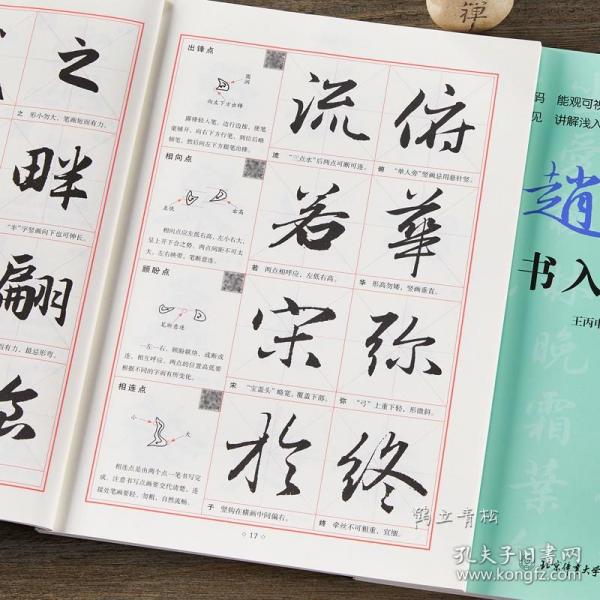 禪
之
之 形小勿大，笔画短而有力。
畔
"半"字竖画向下也可伸长。
翩
而有力，最忌形弯。
念
出锋点
圆润
向左下方出锋
露锋轻入笔，边行边按，使笔
毫铺开，向右下方行笔，到位后略
顿笔，然后向左下方提笔出锋。
流
流 "三点水"后两点可断可连。
俯
俯 "单人旁"竖画总用悬针竖。
相向点
左低
右高
相向点应左低右高，左小右大，
呈上开下合之势，两点间距不可太
大，左右映带，笔断意连。
若
若 两点相呼应，左低右高。
華
华 形高勿矮，竖画垂直。
顾盼点
笔断意连
一左一右，顾盼联络，或断或
连，相互呼应，两点的位置高低要
根据不同的字而有所变化。
宋
宋 "宝盖头"略宽，覆盖下部。
弥
弥 "弓"上重下轻，形微斜。
相连点
小
大
相连点是由两个点一笔书写完
成，注意书写点画要交代清楚，连
接处笔画要轻，勿粗，自然流畅。
於
于 竖钩在横画中间偏右。
终
终 牵丝不可粗重，宜细。
17
码 能观可视
见 讲解浅入
趙
书入
王丙申
晚
霜
葉
北京体育大学
鹤立青松
孔夫子旧書网
www.kongfz.com